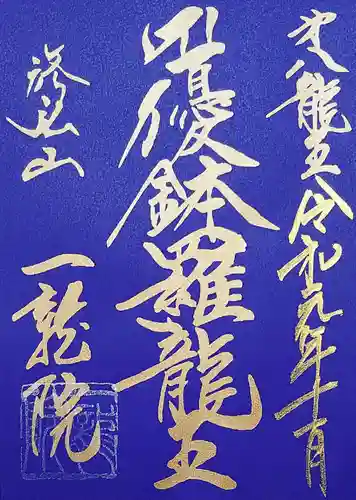 第八龍王 令和元年十一月
優鉢羅龍王
山
一龍院